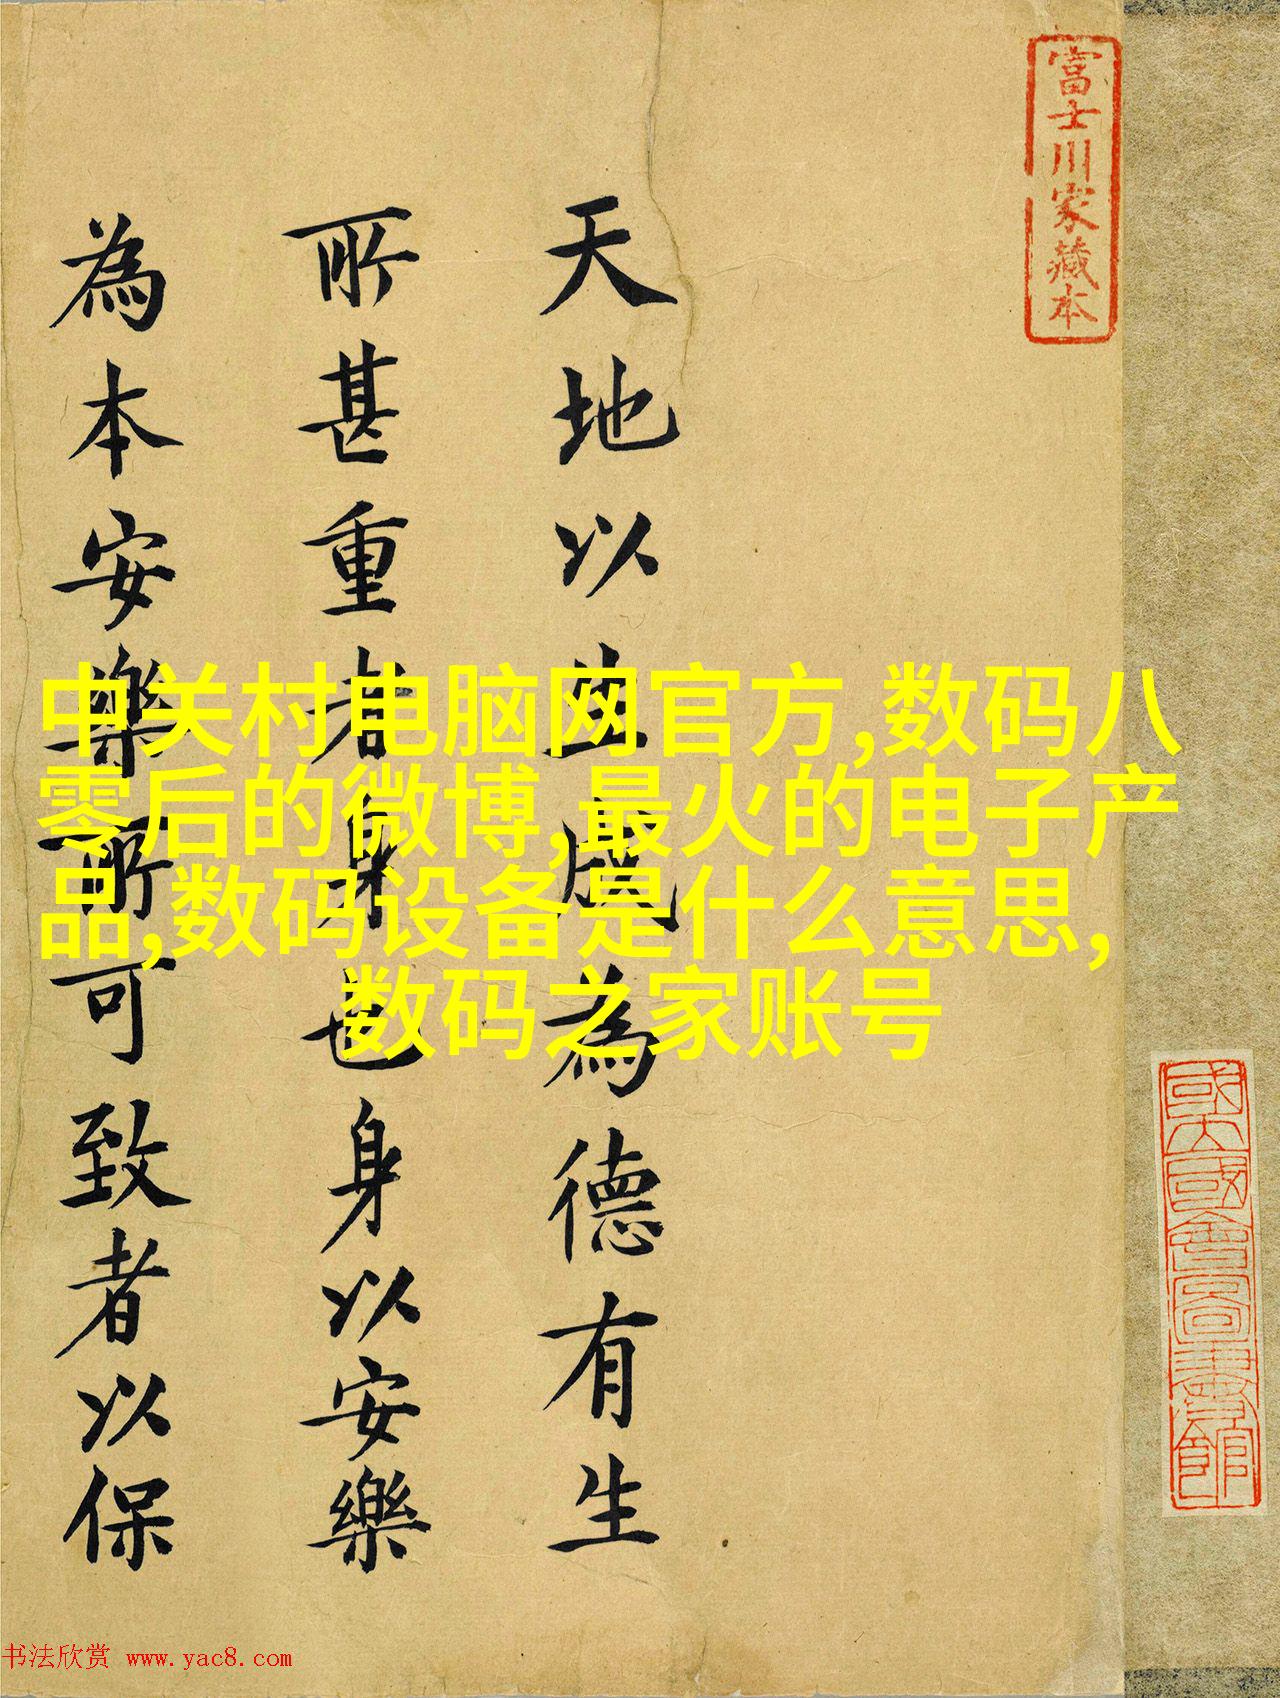 富士川家藏本
天地以生成為德有生
所甚重者身也身以安樂
為本安樂所可致者以保
中关村电脑网官方,数码八
零后的微博,最火的电子产
品,数码设备是什么意思,
数码之家账号
书法欣赏 www.yac8.com